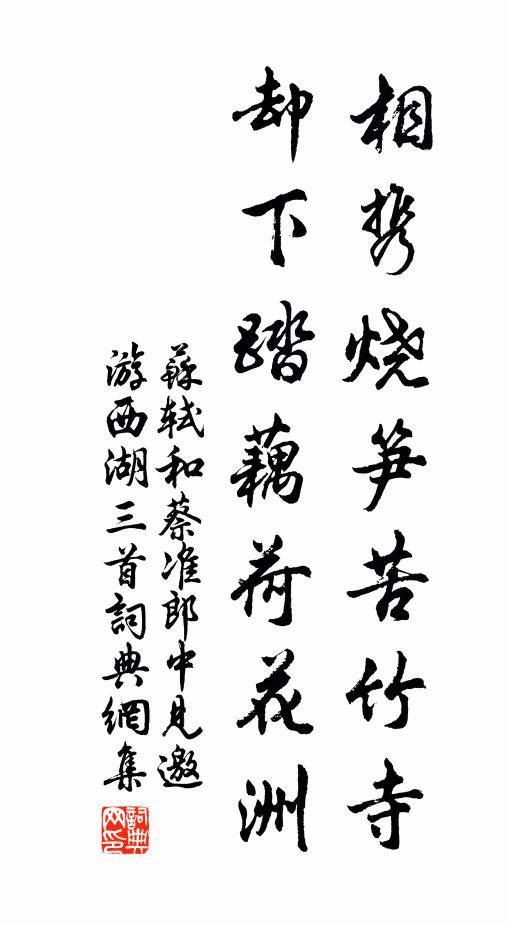 相携烧笋苦竹寺
却下踏藕荷花洲
蘇轼和蔡准郎中見邀
游西湖三首詞典網集
詞典
网印